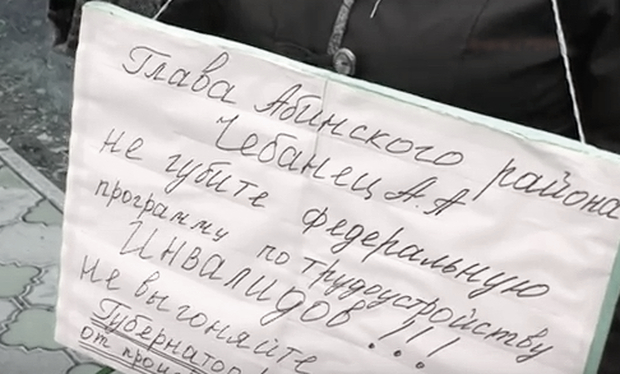 Глава Абинского района
Чебанец А.А
не губите федеральную
программу по трудоустройству
Инвалидов !!!
не выгоняйте
Губернатор
от